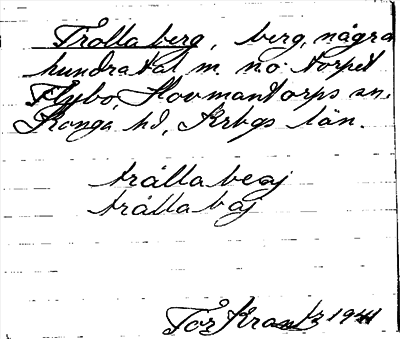 Trollaberg, berg, några
hundratal m. no. torpet
Flybo, Hovmantorps sn.
Konga hd, Krbgs län.
trållabeaj
trållabaj
Tor Krantz 1941